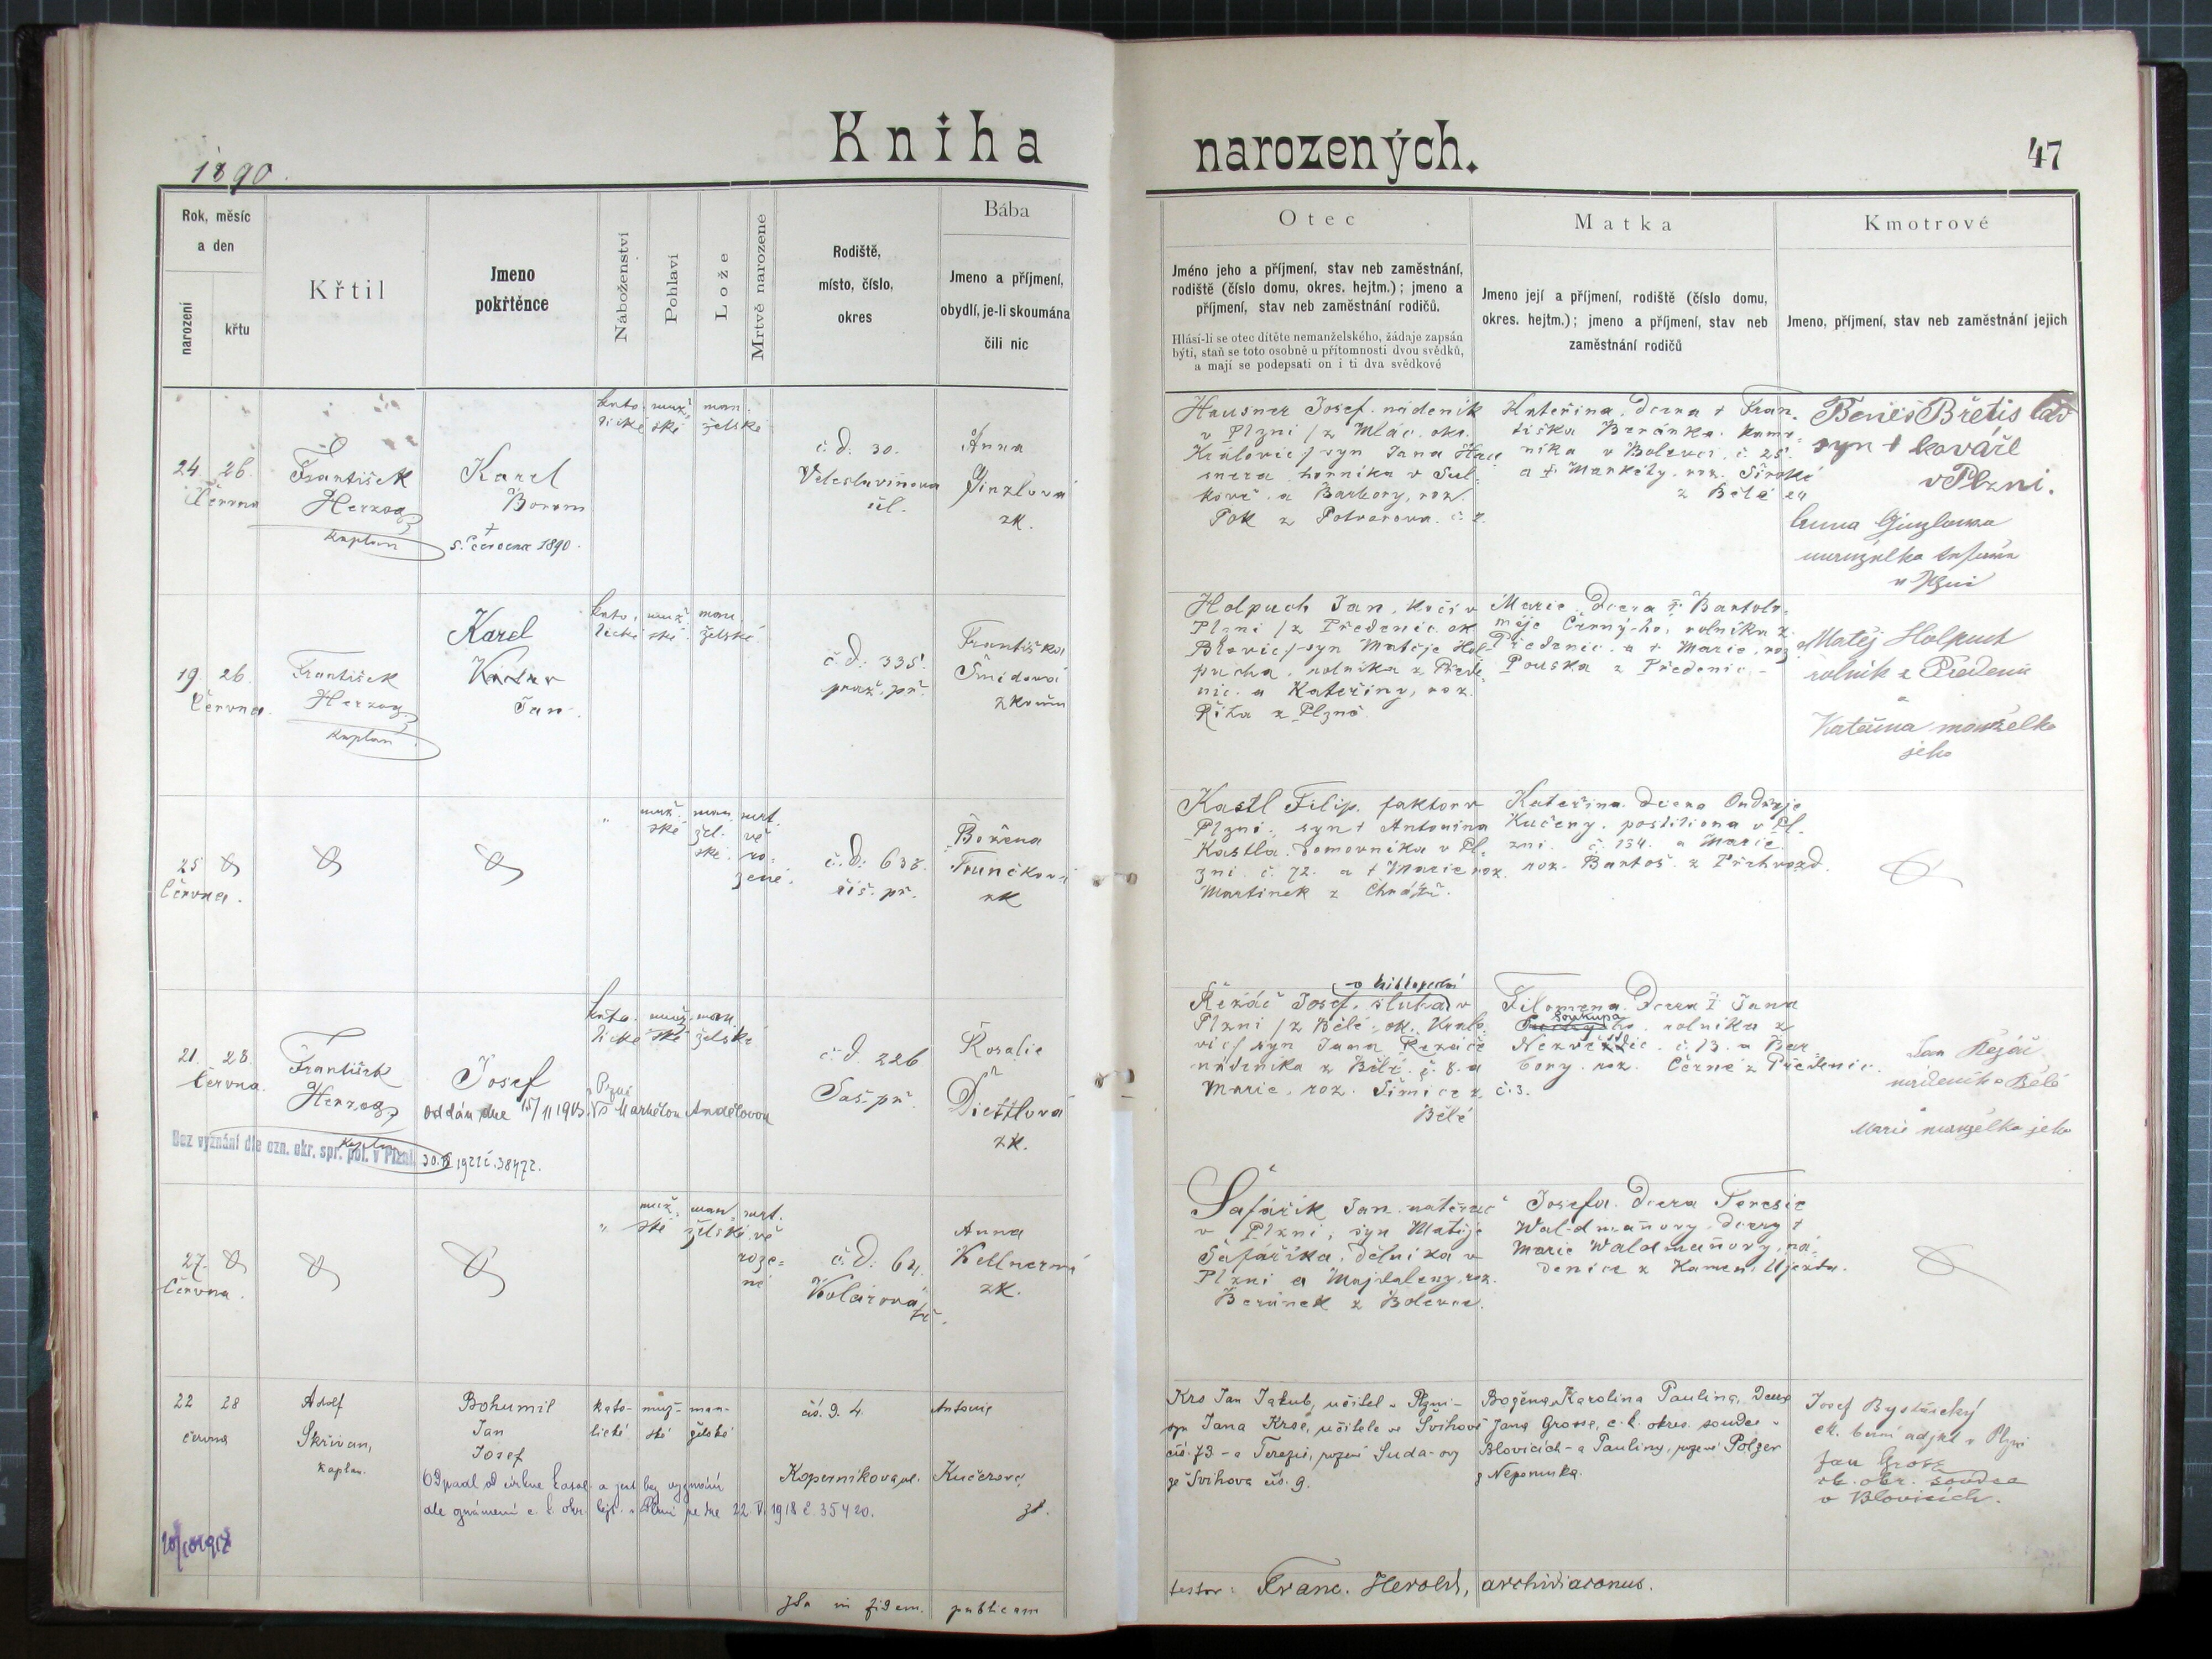 Kniha
narozených.
47
1890.
Rok, měsíc
a den
narození
křtu
Křtil
Jmeno
pokřtěnce
Náboženství
Pohlaví
Lože
Mrtvě narozene
Rodiště,
místo, číslo,
okres
Bába
Jmeno a příjmení,
obydlí, je-li skoumána
čili nic
Otec
Jméno jeho a příjmení, stav neb zaměstnání,
rodiště (číslo domu, okres. hejtm.); jmeno a
příjmení, stav neb zaměstnání rodičů.
Hlásí-li se otec dítěte nemanželského, žádaje zapsán
býti, staň se toto osobně u přítomnosti dvou svědků,
a mají se podepsati on i ti dva svědkové
Matka
Jmeno její a příjmení, rodiště (číslo domu,
okres. hejtm.); jmeno a příjmení, stav neb
zaměstnání rodičů
Kmotrové
Jmeno, příjmení, stav neb zaměstnání jejich
24. 26.
Června
František
Herzog
kaplan
Karel
+
5. července 1890.
kato-
lické
muž-
ské
man-
želské
č. d. 30.
Veleslavínova
ul.
Anna
Ginzlová
zk.
Hausner Josef, nádeník
v Plzni (z Mlác. okr.
Kralovic) syn Jana Hau-
snera, horníka v Sul-
kově, a Barbory, roz.
Pok z Potvorova. č. 2.
Kateřina, dcera + Fran-
tiška Beránka,
níka v Bolevci, č. 25.
a + Markéty, roz. Široké
z Bělé 24
Beneš Břetislav
syn + kováře
v Plzni.
Anna Ginzlowa
v Plzni
19. 26.
Června.
František
Herzog
kaplan
Karel
Jan
kato-
lické
muž-
ské
man-
želské
č. d. 335.
praž. př.
Františka
Šmídová
zkouš
Holpuch Jan, kočí v
Plzni (z Předenic ok.
Blovic) syn Matěje Hol-
pucha, rolníka z Přede-
nic a Kateřiny, roz.
Říha z Plzně.
Marie, dcera + Bartolo-
měje Černý-ho, rolníka z
Předenic a + Marie, roz.
Pouska z Předenic. -
Matěj Holpuch
rolník z Předenic
a
Kateřina manželka
jeho
25
Června.
"
muž-
ské
man-
žel-
ské
mrt-
vě
ro-
zené.
č. d. 633.
říš. př.
Božena
Trunčková
zk
Kastl Filip, faktor v
Plzni, syn + Antonína
Kastla, domovníka v Pl-
zni č. 72. a + Marie roz.
Martinek z Chrástu.
Kateřina, dcera Ondřeje
Kučery, postiliona v Pl-
zni č. 134. a Marie
roz. Bartoš z Příchvozd.
21. 28.
Června.
František
Herzog
kaplan
Josef
oddán dne 15/11 1913 v Plzni s Markétou Andělovou
Bez vyznání dle ozn. okr. spr. pol. v Plzni 30. 1921 č. 38472.
kato-
lické
muž-
ské
man-
želské
č. d. 226
Saš. př.
Rosalie
Dietlová
zk.
Řezáč Josef, sluha v
Plzni (z Bělé, ok. Kralo-
vic) syn Jana Řezáče
nádeníka z Bělé č. 8. a
Marie, roz. Šimice z
Bělé
Filomena, dcera + Jana
Soukupa
rolníka z
Nezvěstic č. 13. a Bar-
bory, roz. Černé z Předenic.
č. 3.
Jan Řezáč
nádeník z Bělé
Marie manželka jeho
27.
Června.
"
muž-
ské
man-
želské
mrt-
vě
roze-
né
č. d. 64.
Kolárova
tř.
Anna
Kellnerová
zk.
Šafářík Jan, natěrač
v Plzni, syn Matěje
Šafaříka, dělníka v
Plzni a Majdaleny, roz.
Beránek z Bolevce.
Josefa, dcera Teresie
Waldmañovy, dcery +
Marie Waldmañovy, ná-
denice z Kamen. Ujezda.
22 28
června
Adolf
Skřivan,
kaplan.
Bohumil
Jan
Josef
kato-
lické
muž-
ské
man-
želské
čís. d. 4.
Koperníkova ul.
Antonie
Kučerová
zk.
Odpadl od církve katol. a jest bez vyznání
dle oznámení c. k. okr. hejt. v Plzni ze dne 22. V. 1918 č. 35420.
Krs Jan Jakub, učitel v Plzni -
syn Jana Krse, učitele ve Švihově
čís. 73 - a Terezie, rozené Suda-ovy
ze Švihova čís. 9.
Božena Karolina Paulina, dcera
Jana Grosse, c. k. okres. soudce v
Blovicích - a Pauliny, rozené Polzer
z Nepomuka.
Josef Bystřický
ck. berní adjkt v Plzni
Jan Gross
ck. okr. soudce
v Blovicích.
Ita in fidem publicam
testor: Franc. Herold, archidiaconus.